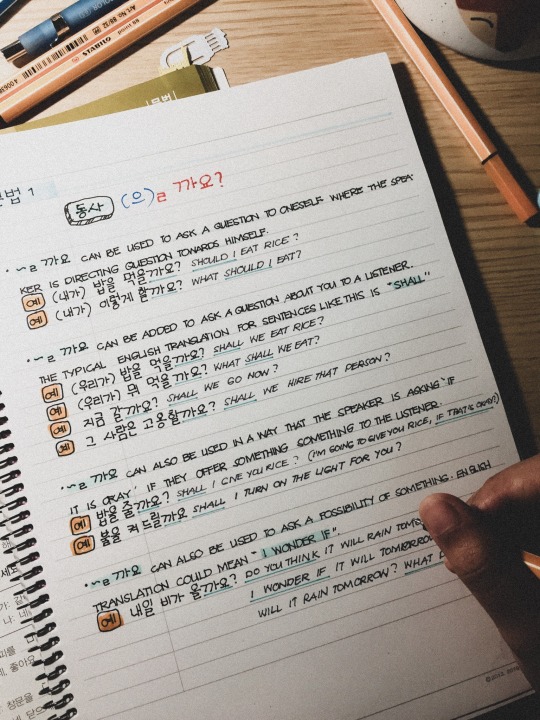 STABILO point 88
Art.No 88/32
문법
문법 1
동사 (으)ㄹ 까요?
· ~ㄹ 까요 CAN BE USED TO ASK A QUESTION TO ONESELF WHERE THE SPEA-
KER IS DIRECTING QUESTION TOWARDS HIMSELF.
예 (내가) 밥을 먹을까요? SHOULD I EAT RICE?
예 (내가) 이렇게 할까요? WHAT SHOULD I EAT?
· ~ㄹ 까요 CAN BE ADDED TO ASK A QUESTION ABOUT YOU TO A LISTENER.
THE TYPICAL ENGLISH TRANSLATION FOR SENTENCES LIKE THIS IS "SHALL"
예 (우리가) 밥을 먹을까요? SHALL WE EAT RICE?
예 (우리가) 뭐 먹을까요? WHAT SHALL WE EAT?
예 지금 갈까요? SHALL WE GO NOW?
예 그 사람은 고용할까요? SHALL WE HIRE THAT PERSON?
· ~ㄹ 까요 CAN ALSO BE USED IN A WAY THAT THE SPEAKER IS ASKING 'IF
IT IS OKAY' IF THEY OFFER SOMETHING SOMETHING TO THE LISTENER.
예 밥을 줄까요? SHALL I GIVE YOU RICE? (I'M GOING TO GIVE YOU RICE, IF THAT IS OKAY?)
예 불을 켜 드릴까요 SHALL I TURN ON THE LIGHT FOR YOU?
· ~ㄹ 까요 CAN ALSO BE USED TO ASK A POSSIBILITY OF SOMETHING. ENGLISH
TRANSLATION COULD MEAN "I WONDER IF".
예 내일 비가 올까요? DO YOU THINK IT WILL RAIN TOMO
I WONDER IF IT WILL TOMORROW
WILL IT RAIN TOMORROW? WHAT D